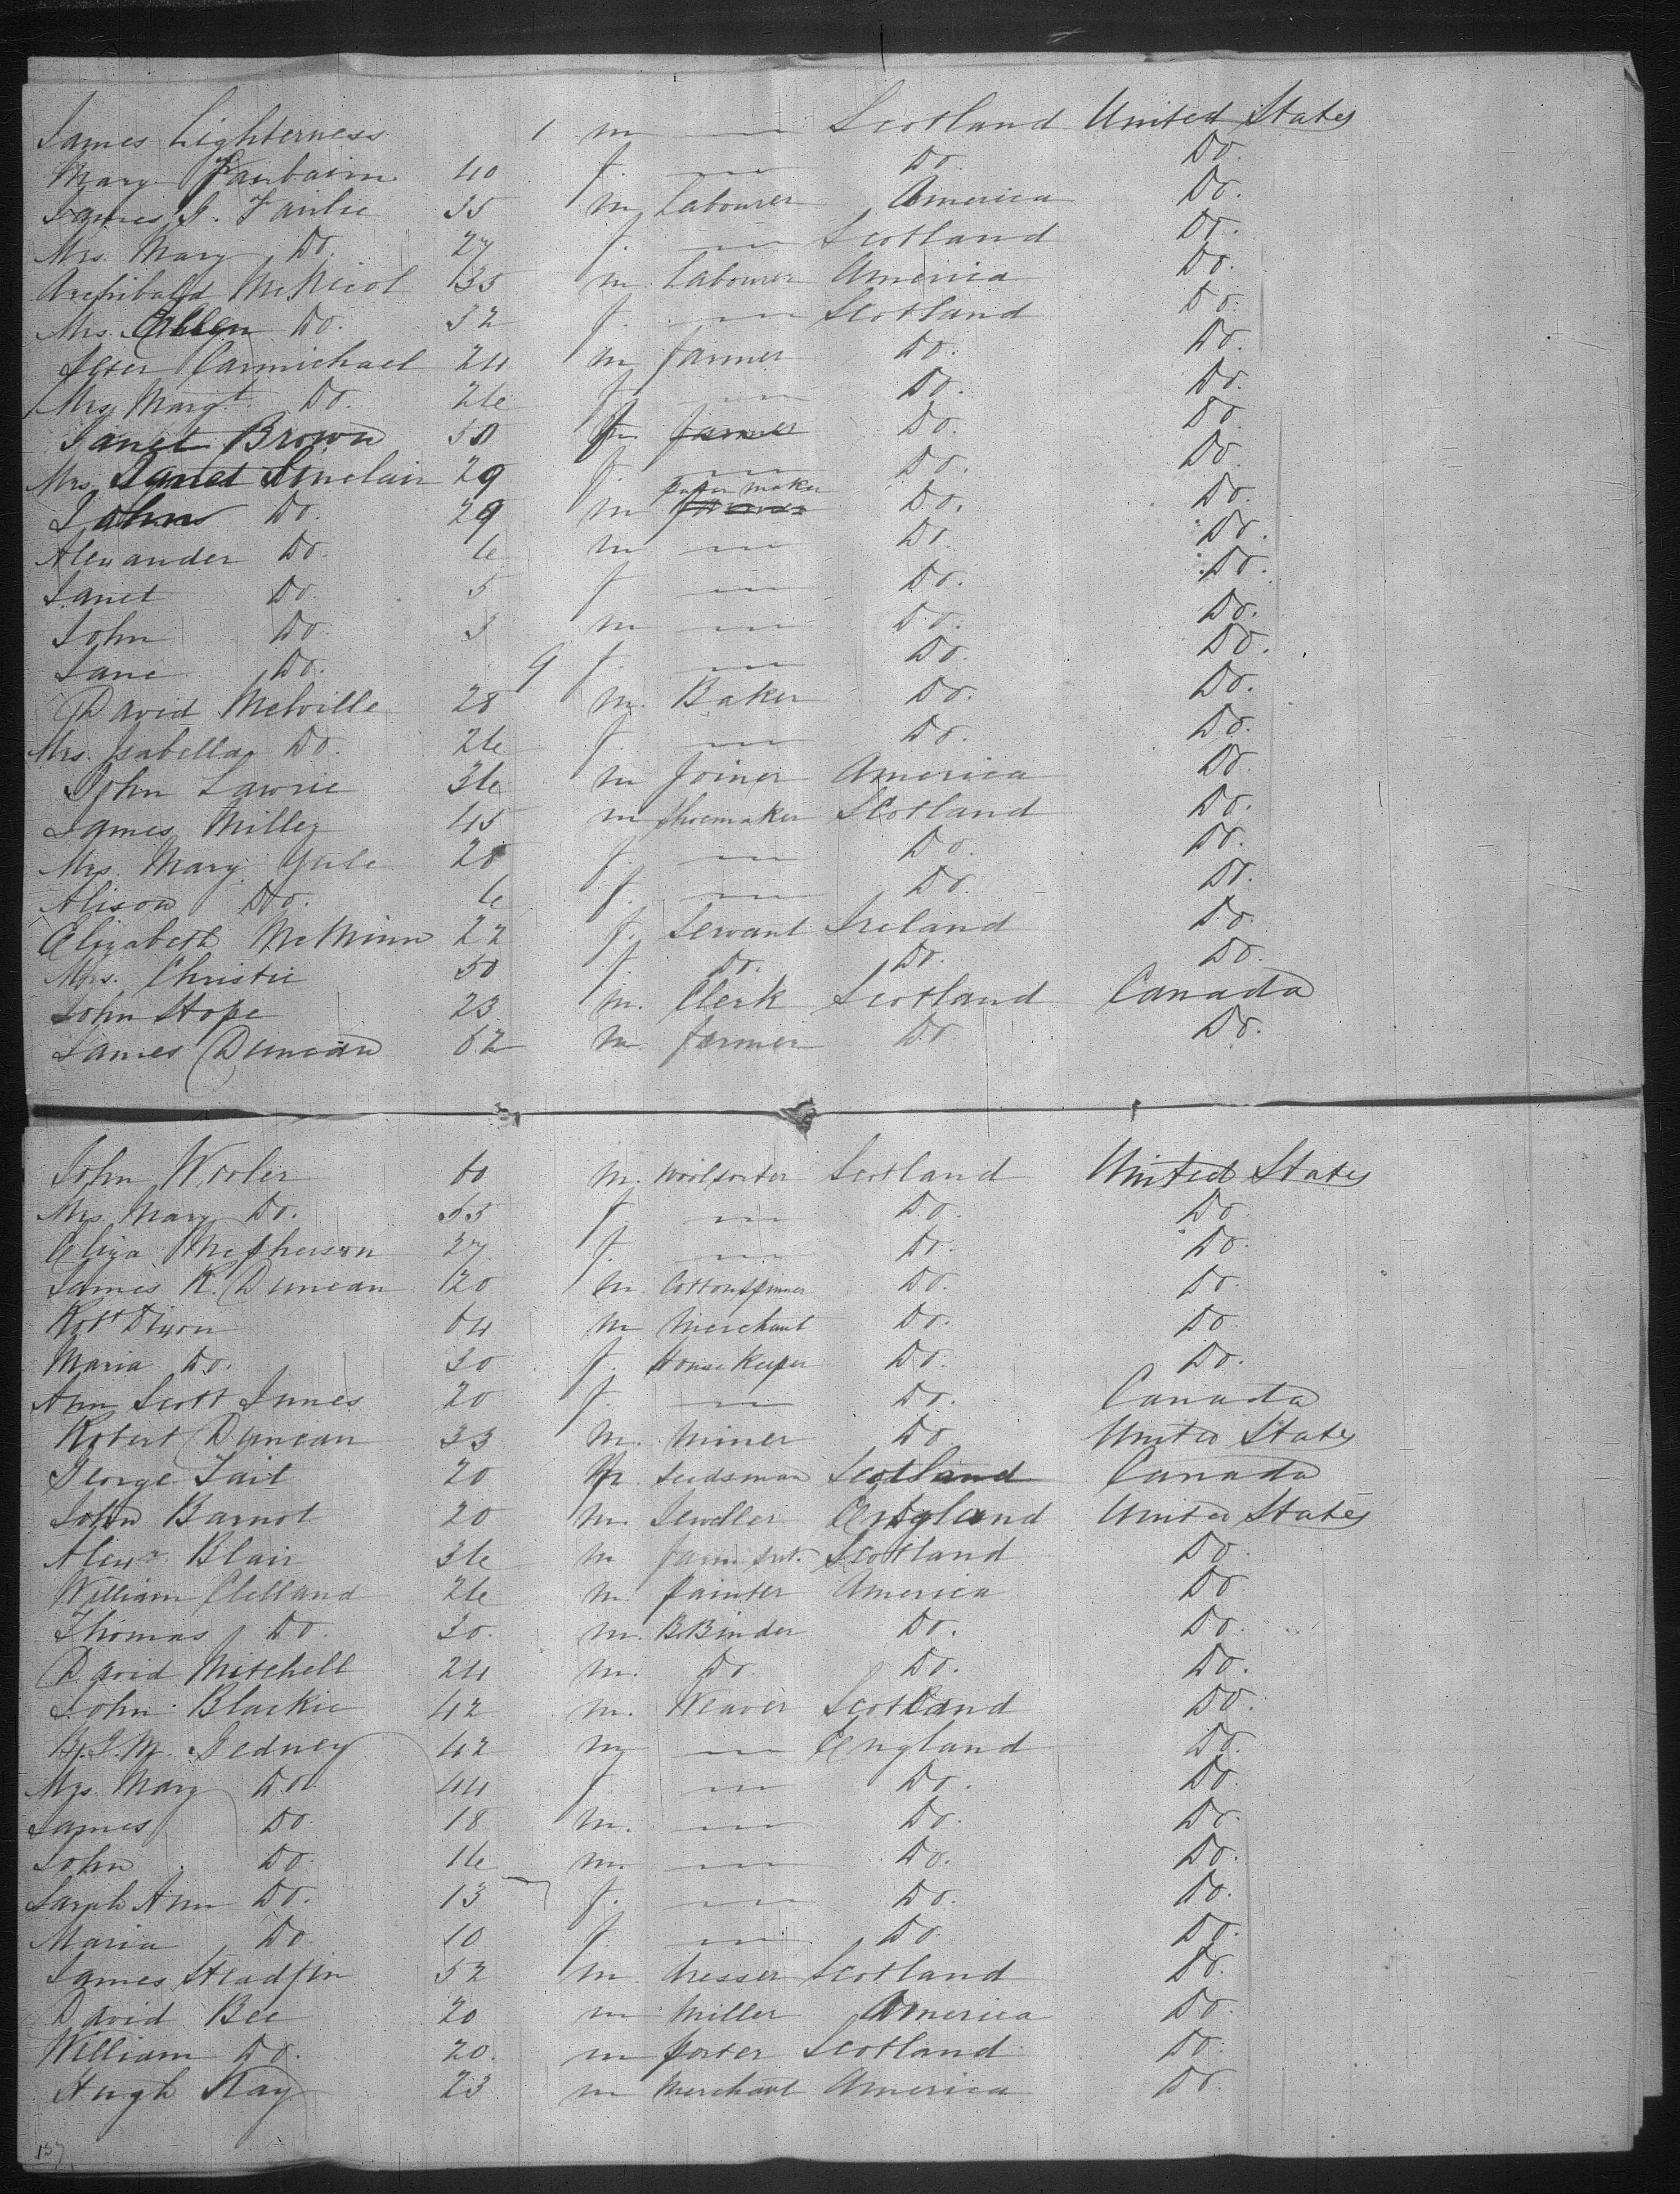 James Lighterness 1 m — Scotland United States
Mary Fairbairn 40 f. — Do. Do.
James J. Fairlie 35 m Labourer America Do.
Mrs. Mary Do. 27 f. — Scotland Do.
Archibald McNicol 35 m Labourer America Do.
Mrs. Do. 32 f. — Scotland Do.
Peter Carmichael 24 m farmer Do. Do.
Mrs Margt. Do. 26 f. — Do. Do.
Janet Brown 50 f. farmer Do. Do.
Mrs. Janet Sinclair 29 f. — Do. Do.
John Do. 29 m paper maker Do. Do.
Alexander Do. 6 m — Do. Do.
Janet Do. 5 f — Do. Do.
John Do. 3 m — Do. Do.
Jane Do. 9 f. — Do. Do.
David Melville 28 m. Baker Do. Do.
Mrs. Isabella Do. 26 f. — Do. Do.
John Lawrie 36 m Joiner America Do.
James Miller 45 m shoemaker Scotland Do.
Mrs. Mary Yule 28 f. — Do. Do.
Alison Do. 6 f. — Do. Do.
Elizabeth McMinn 22 f. Servant Ireland Do.
Mrs. Christie 50 f. Do. Do. Do.
John Hope 23 m. Clerk Scotland Canada
James Duncan 62 m. farmer Do. Do.
John Wooler 60 m. woolsorter Scotland United States
Mrs. Mary Do. 55 f — Do. Do.
Eliza McPherson 27 f. — Do. Do.
James R. Duncan 20 m. Cottonspinner Do. Do.
Robt Dixon 64 m merchant Do. Do.
Maria Do. 30 f. House Keeper Do. Do.
Ann Scott Innes 20 f. — Do. Canada
Robert Duncan 33 m. miner Do United States
George Tait 20 m Seedsman Scotland Canada
John Barnot 20 m. Jewller England United States
Alexr. Blair 36 m farm Srt. Scotland Do.
William Clelland 26 m. painter America Do.
Thomas Do. 30. m. B.Binder Do. Do.
David Mitchell 24 m. Do. Do. Do.
John Blackie 42 m. Weaver Scotland Do.
Gedney 42 m — England Do.
Mrs. Mary Do. 44 f — Do. Do.
James Do 18 m. — Do. Do.
John Do. 16 m. — Do. Do.
Sarah Ann Do. 13 f. — Do. Do.
Maria Do 10 f. — Do. Do.
James 52 m. dresser Scotland Do.
David Bee 20 m miller America Do.
William Do. 20. m porter Scotland Do.
Hugh Kay 23 m merchant America Do.
157